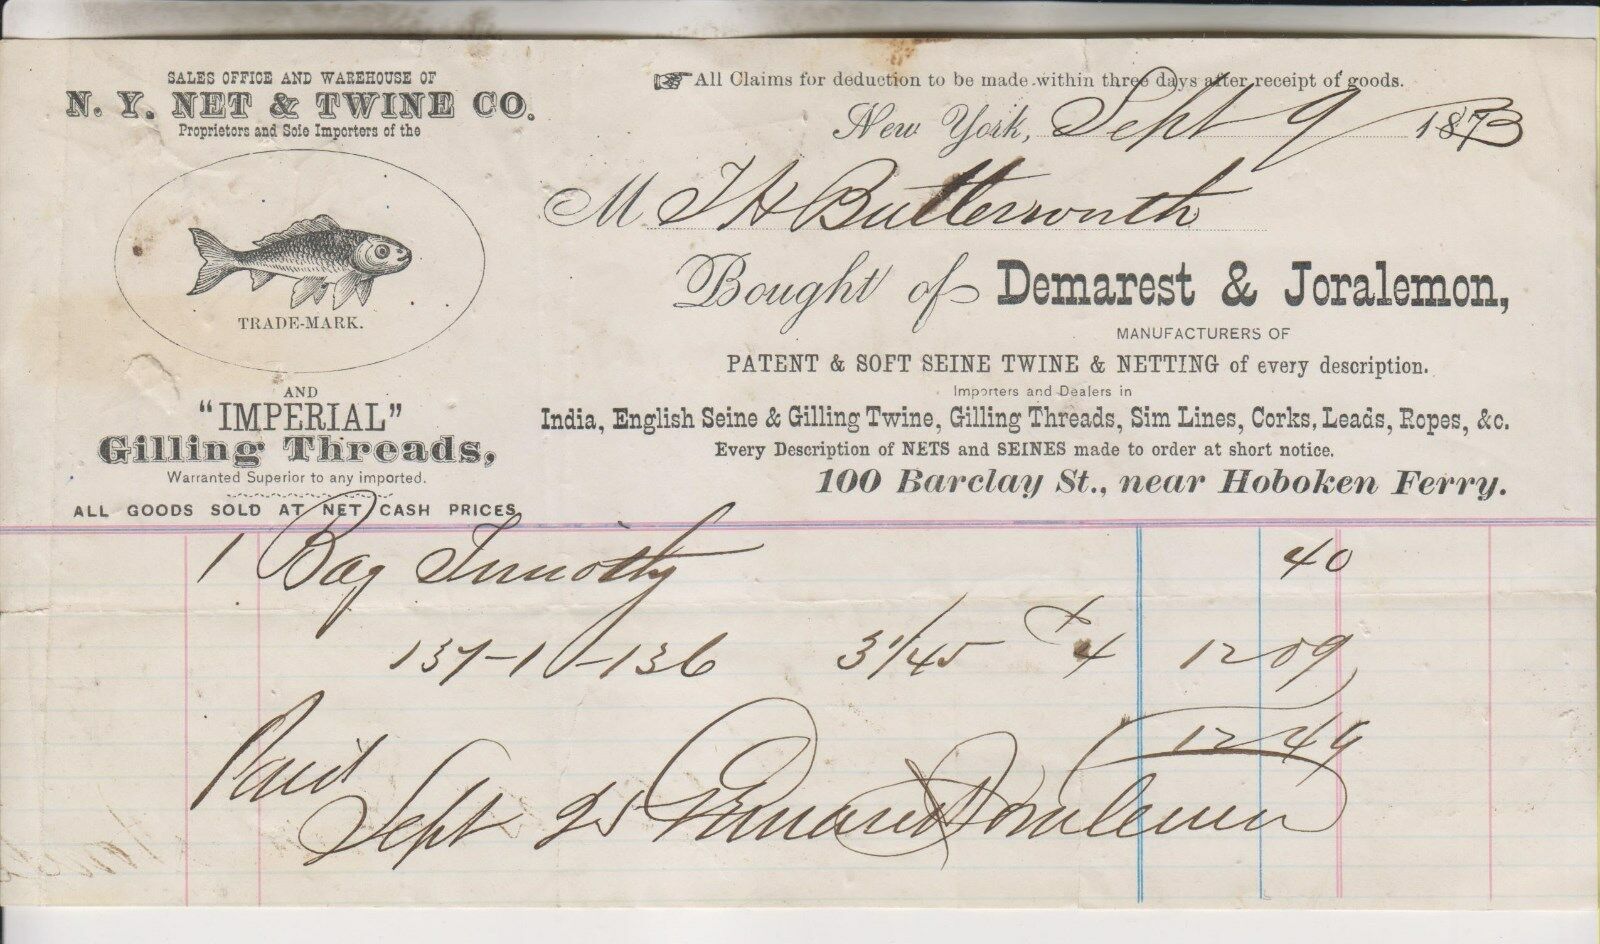 SALES OFFICE AND WAREHOUSE OF
N. Y. NET & TWINE CO.
Proprietors and Sole Importers of the
TRADE-MARK.
AND
"IMPERIAL"
Gilling Threads,
Warranted Superior to any imported.
ALL GOODS SOLD AT NET CASH PRICES
All Claims for deduction to be made within three days after receipt of goods.
New York, Sept 9 1873
M J H Butterworth
Bought of Demarest & Joralemon,
MANUFACTURERS OF
PATENT & SOFT SEINE TWINE & NETTING of every description.
Importers and Dealers in
India, English Seine & Gilling Twine, Gilling Threads, Sim Lines, Corks, Leads, Ropes, &c.
Every Description of NETS and SEINES made to order at short notice.
100 Barclay St., near Hoboken Ferry.
1 Bag Timothy 40
137-1-136 3 1/45 4 12 09
12 49
Paid
Sept 25 Demarest & Joralemon